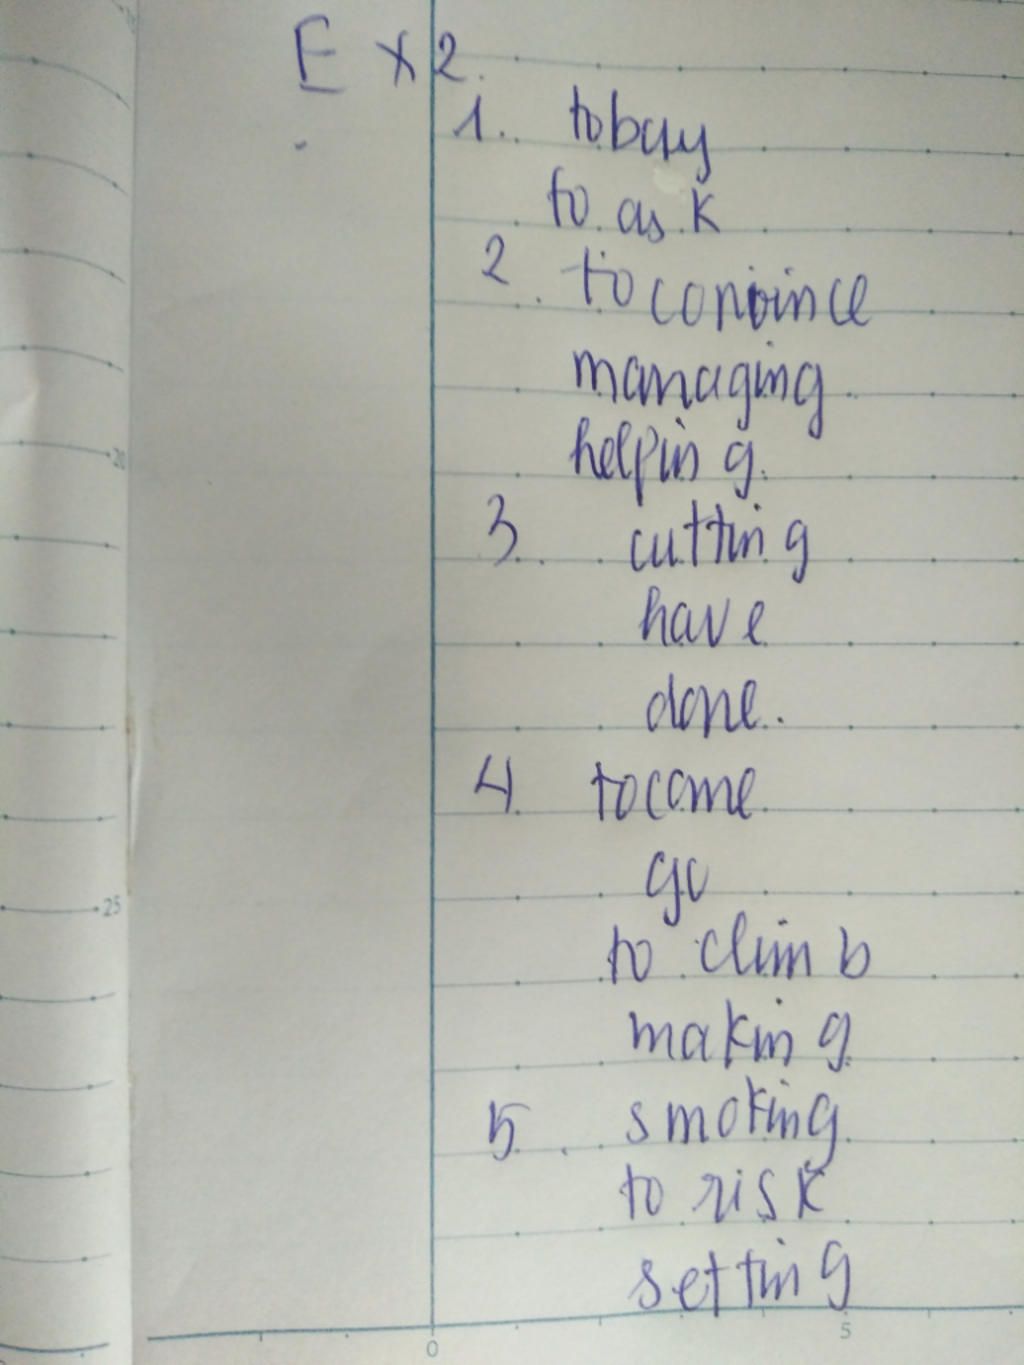 Ex 2.
1. to buy
to ask
2. to convince
managing
helping.
3. cutting
have
done.
4. to come
go
to climb
making
5. smoking
to risk
setting
20
25
0 5